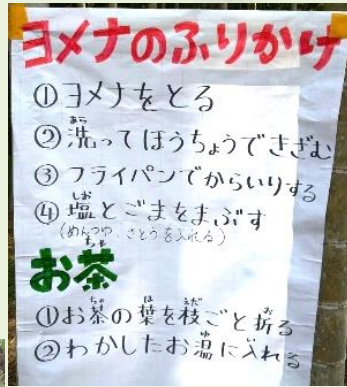 ヨメナのふりかけ
①ヨメナをとる
②洗ってほうちょうできざむ
③フライパンでからいりする
④塩とごまをまぶす
(めんつゆ、さとうを入れる)
お茶
①お茶の葉を枝ごと折る
②わかしたお湯に入れる